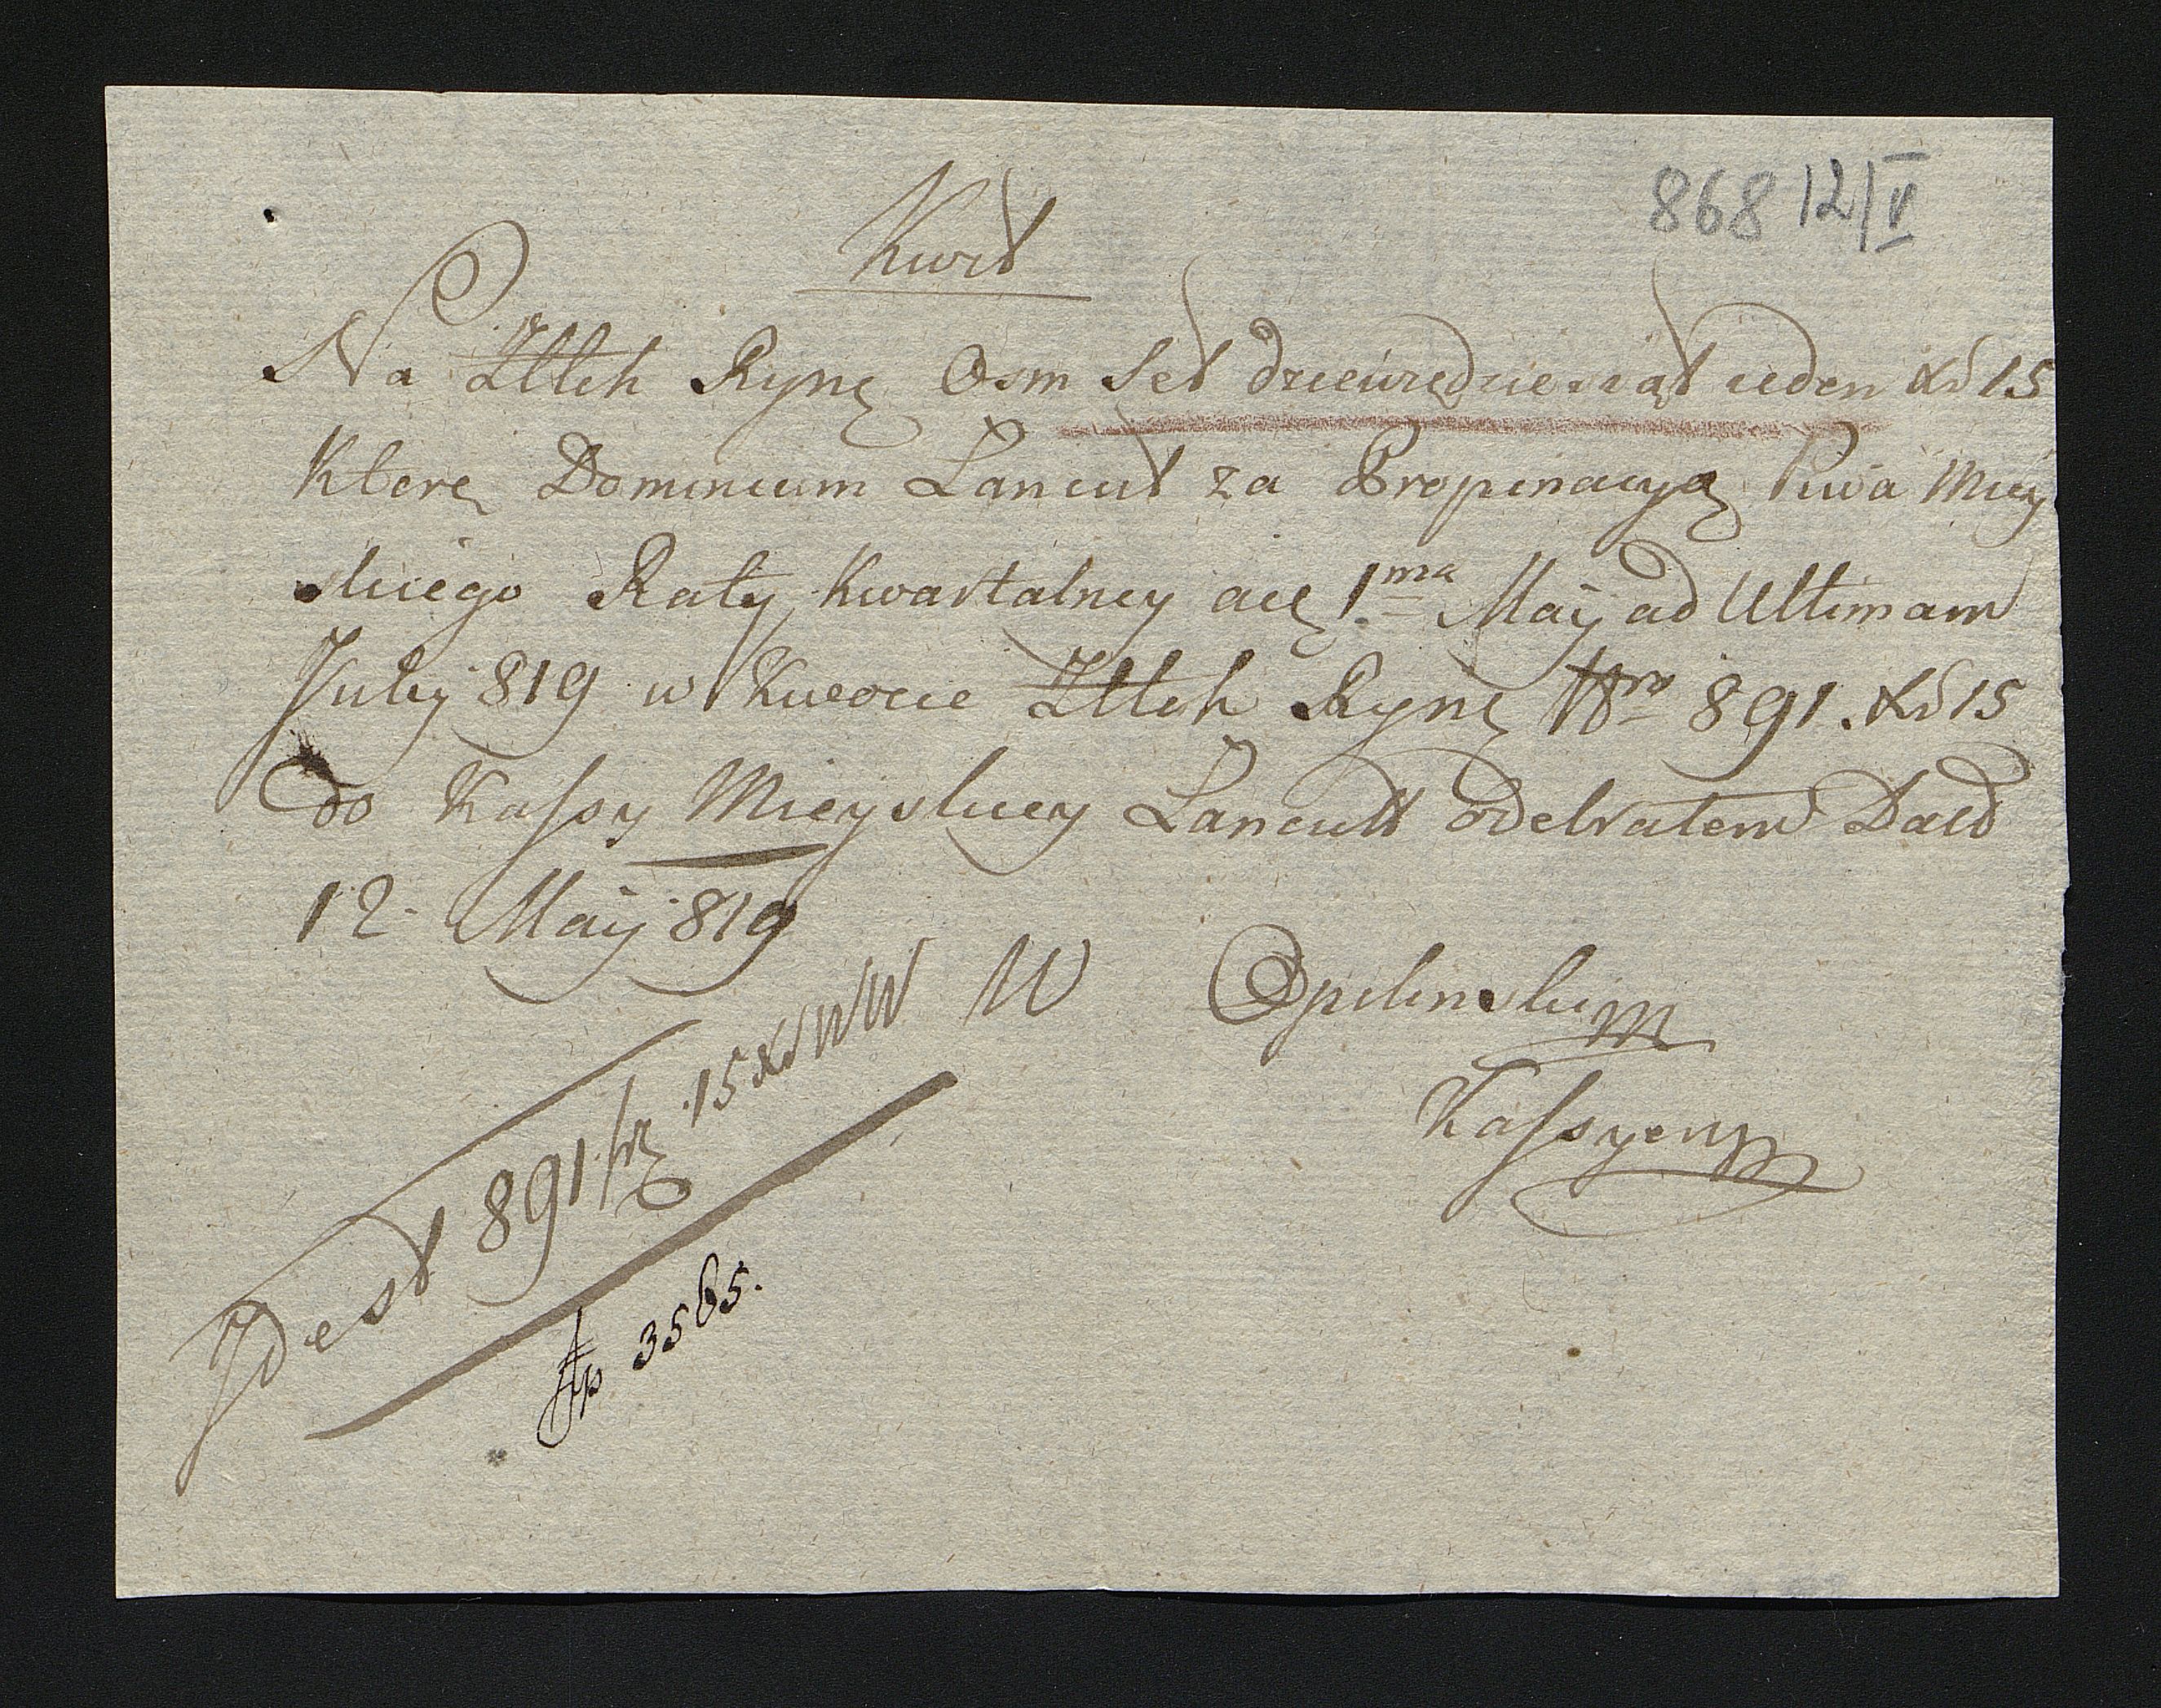 868 12/V
Kwit
Na Złłch Ryng Osm Set dziewiędziesiąt ieden xr 15
Które Dominium Lancut za Propinacyą Piwa Miey
skiego Raty Kwartalney a 1ma Maij ad Ultimam
July 819 w Kwocie Złłch Ryng Nro 891. xr 15
do Kassy Mieyskiey Lancutt odebrałem Datt
12 Maij 819
W Opilinski
Kassyer
Jdest 891 fr. 15 xr WW
fp 3565.